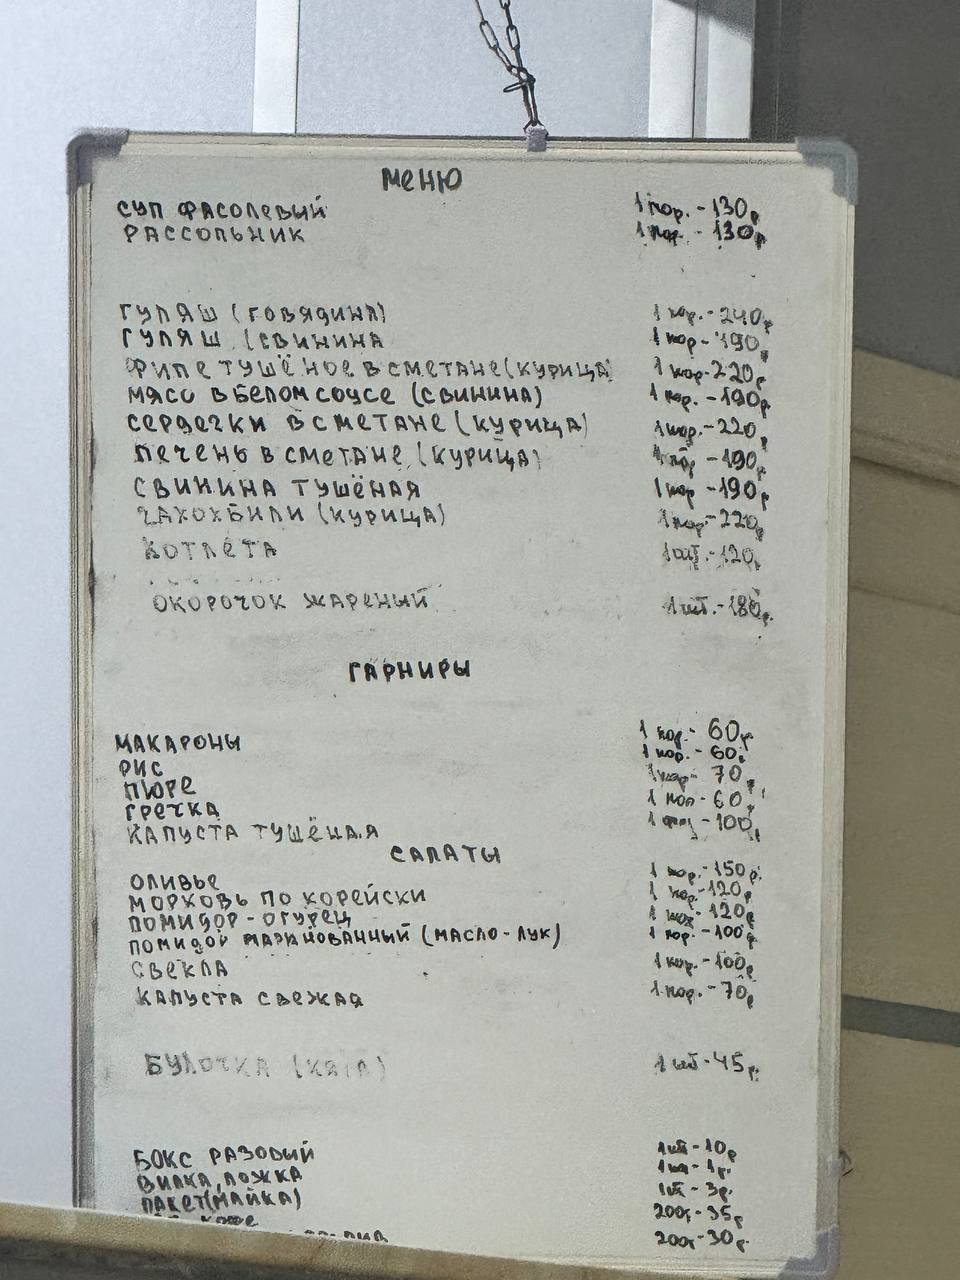 МЕНЮ
СУП ФАСОЛЕВЫЙ 1 пор. - 130р
РАССОЛЬНИК 1 пор. - 130р
ГУЛЯШ (ГОВЯДИНА) 1 пор. - 240р
ГУЛЯШ (СВИНИНА 1 пор - 190р
ФИЛЕ ТУШЁНОЕ В СМЕТАНЕ (КУРИЦА) 1 пор - 220р
МЯСО В БЕЛОМ СОУСЕ (СВИНИНА) 1 пор. - 190р
СЕРДЕЧКИ В СМЕТАНЕ (КУРИЦА) 1 пор. - 220р
ПЕЧЕНЬ В СМЕТАНЕ (КУРИЦА) 1 пор - 190р
СВИНИНА ТУШЁНАЯ 1 пор - 190р
ЧАХОХБИЛИ (КУРИЦА) 1 пор - 220р
КОТЛЕТА 1 шт. - 120р
ОКОРОЧОК ЖАРЕНЫЙ 1 шт. - 180р
ГАРНИРЫ
МАКАРОНЫ 1 пор - 60р
РИС 1 пор. - 60р
ПЮРЕ 1 пор - 70р
ГРЕЧКА 1 пор - 60р
КАПУСТА ТУШЁНАЯ 1 пор - 100р
САЛАТЫ
ОЛИВЬЕ 1 пор. - 150р.
МОРКОВЬ ПО КОРЕЙСКИ 1 пор. - 120р
ПОМИДОР - ОГУРЕЦ 1 пор - 120р
ПОМИДОР МАРИНОВАННЫЙ (МАСЛО - ЛУК) 1 пор. - 100р
СВЕКЛА 1 пор. - 100р
КАПУСТА СВЕЖАЯ 1 пор. - 70р
БУЛОЧКА 1 шт - 45р.
БОКС РАЗОВЫЙ 1 шт - 10р
ВИЛКА, ЛОЖКА 1 шт - 1р.
ПАКЕТ (МАЙКА) 1 шт - 3р.
КОФЕ 200г - 35р
200г - 30р.